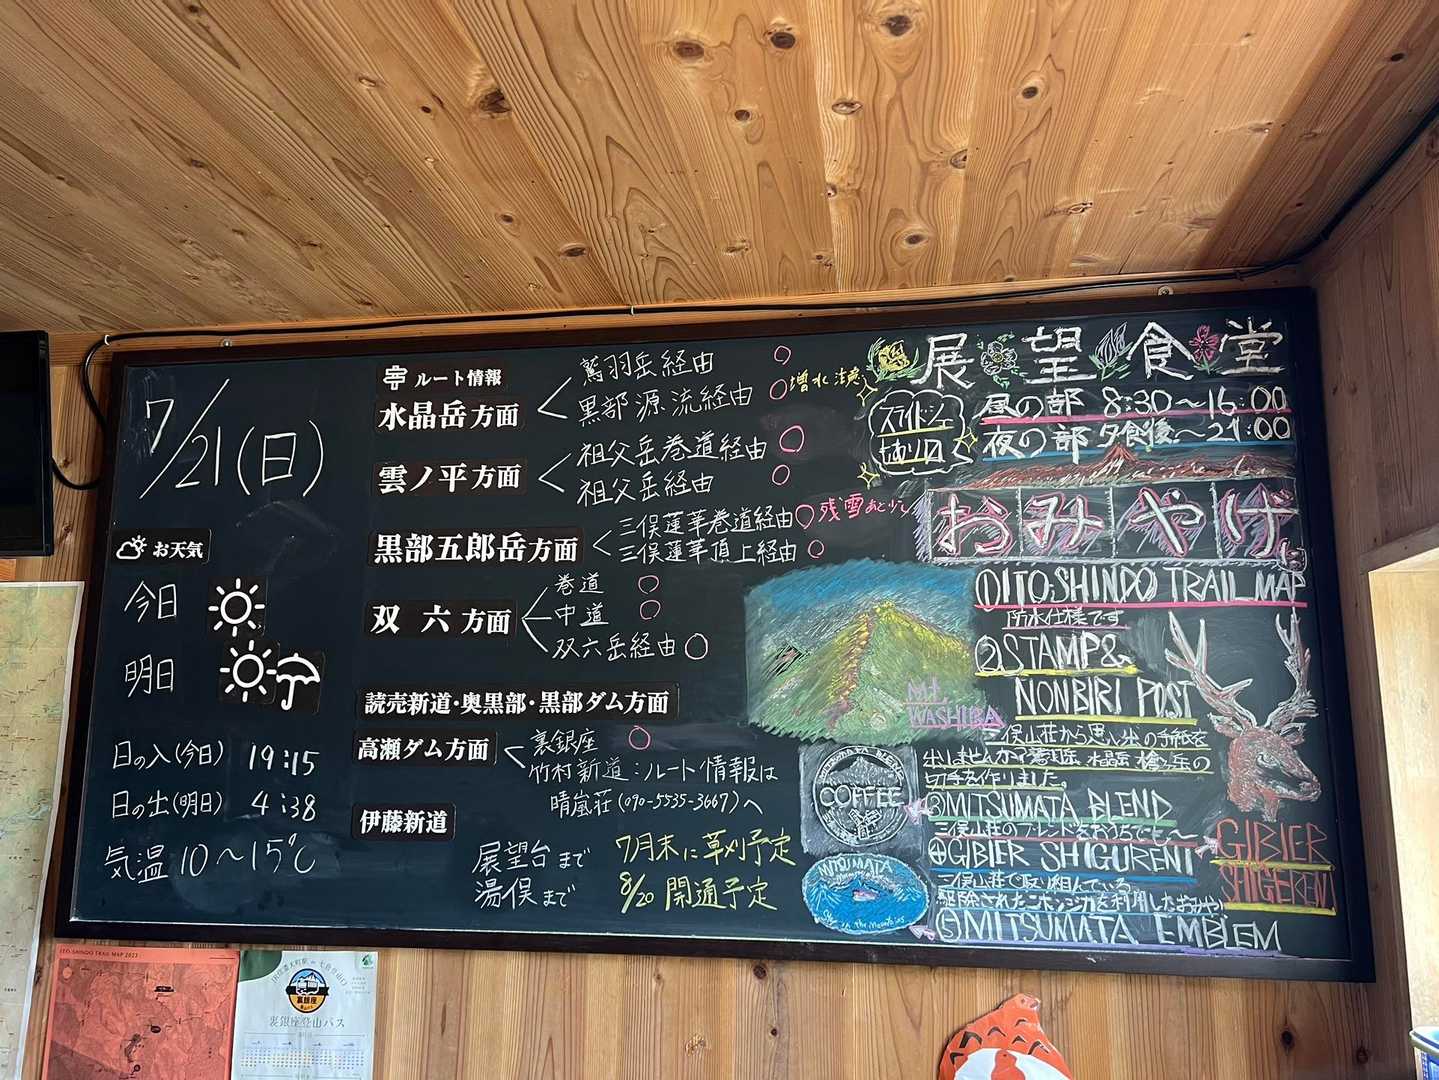 7/21(日)
お天気
今日
明日
日の入(今日) 19:15
日の出(明日) 4:38
気温 10〜15℃
ルート情報
水晶岳方面
鷲羽岳経由 ○
黒部源流経由 ○ 増水注意
雲ノ平方面
祖父岳巻道経由 ○
祖父岳経由 ○
黒部五郎岳方面
三俣蓮華巻道経由 ○ 残雪あと少し
三俣蓮華頂上経由 ○
双六方面
巻道 ○
中道 ○
双六岳経由 ○
読売新道・奥黒部・黒部ダム方面
高瀬ダム方面
裏銀座 ○
竹村新道:ルート情報は
晴嵐荘(090-5535-3667)へ
伊藤新道
展望台まで 7月末に草刈予定
湯俣まで 8/20 開通予定
展望食堂
スライドショー
あり〼
昼の部 8:30〜16:00
夜の部 夕食後〜21:00
おみやげ
①ITO-SHINDO TRAIL MAP
防水仕様です
②STAMP &
NONBIRI POST
三俣山荘から思い出の手紙を
出しませんか? 鷲羽岳、水晶岳、槍ヶ岳の
切手を作りました。
③MITSUMATA BLEND
三俣山荘のブレンドをおうちでも〜
④GIBIER SHIGURENI
三俣山荘で取り組んでいる
駆除されたニホンジカを利用したおみやげ
⑤MITSUMATA EMBLEM
Mt.
WASHIBA
MITSUMATA BLEND
COFFEE
MITSUMATA
in the Mountains
GIBIER
SHIGERENI
ITO-SHINDO TRAIL MAP 2023
裏銀座
裏銀座登山バス